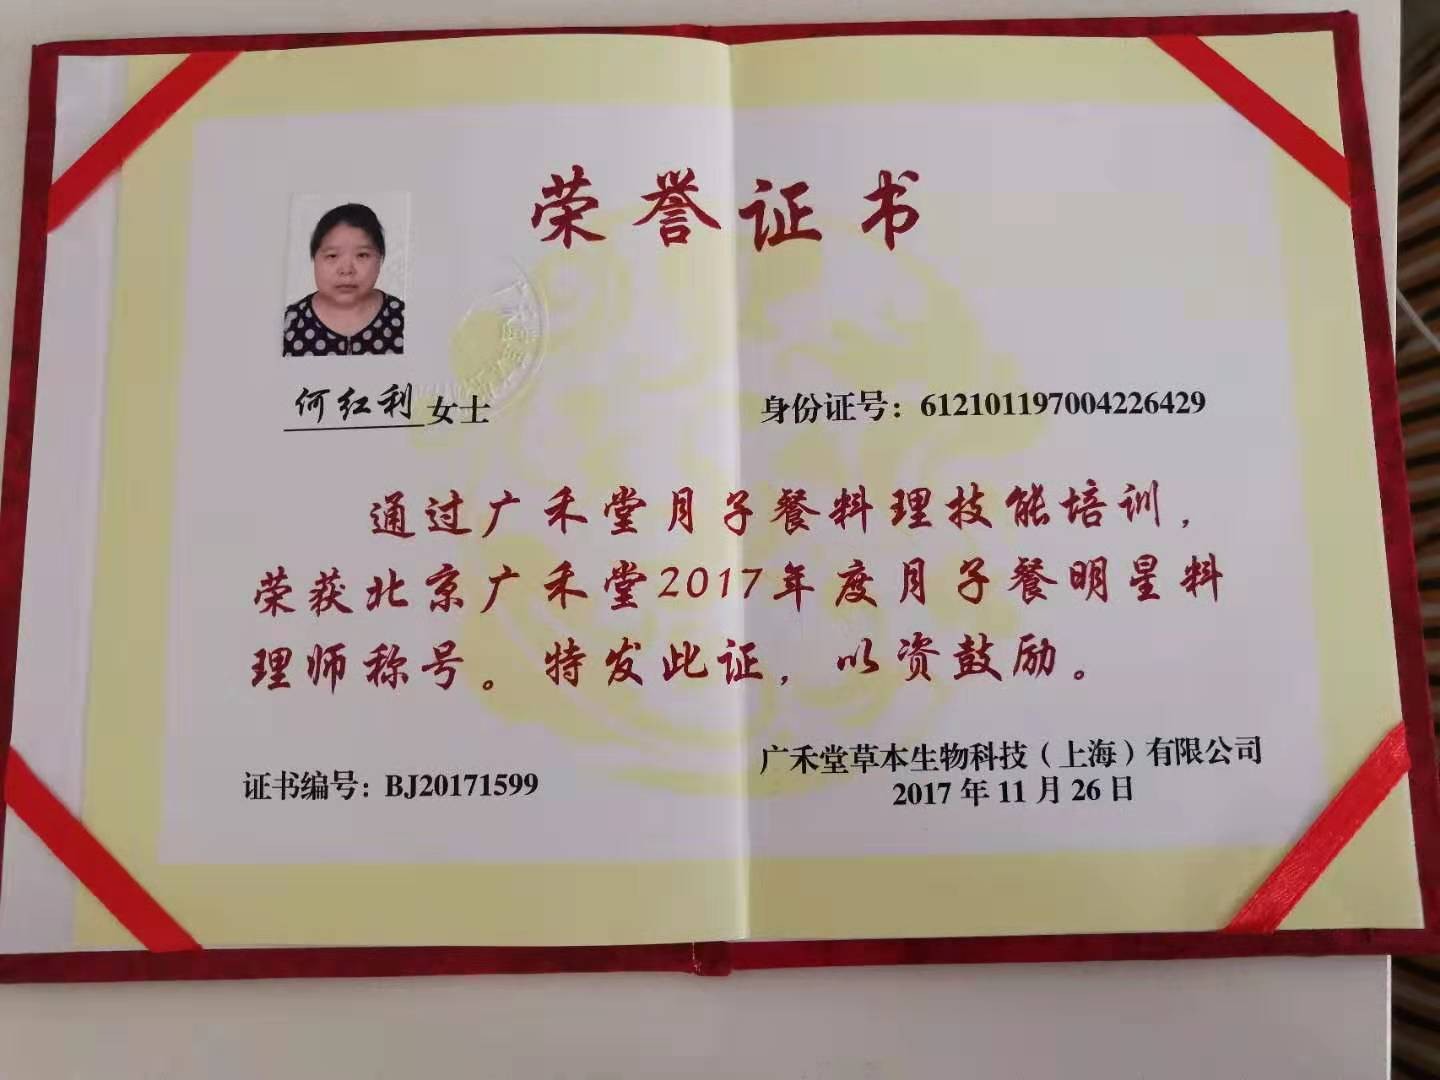 荣誉证书
何红利女士
身份证号：612101197004226429
通过广禾堂月子餐料理技能培训，
荣获北京广禾堂2017年度月子餐明星料
理师称号。特发此证，以资鼓励。
证书编号：BJ20171599
广禾堂草本生物科技（上海）有限公司
2017年11月26日